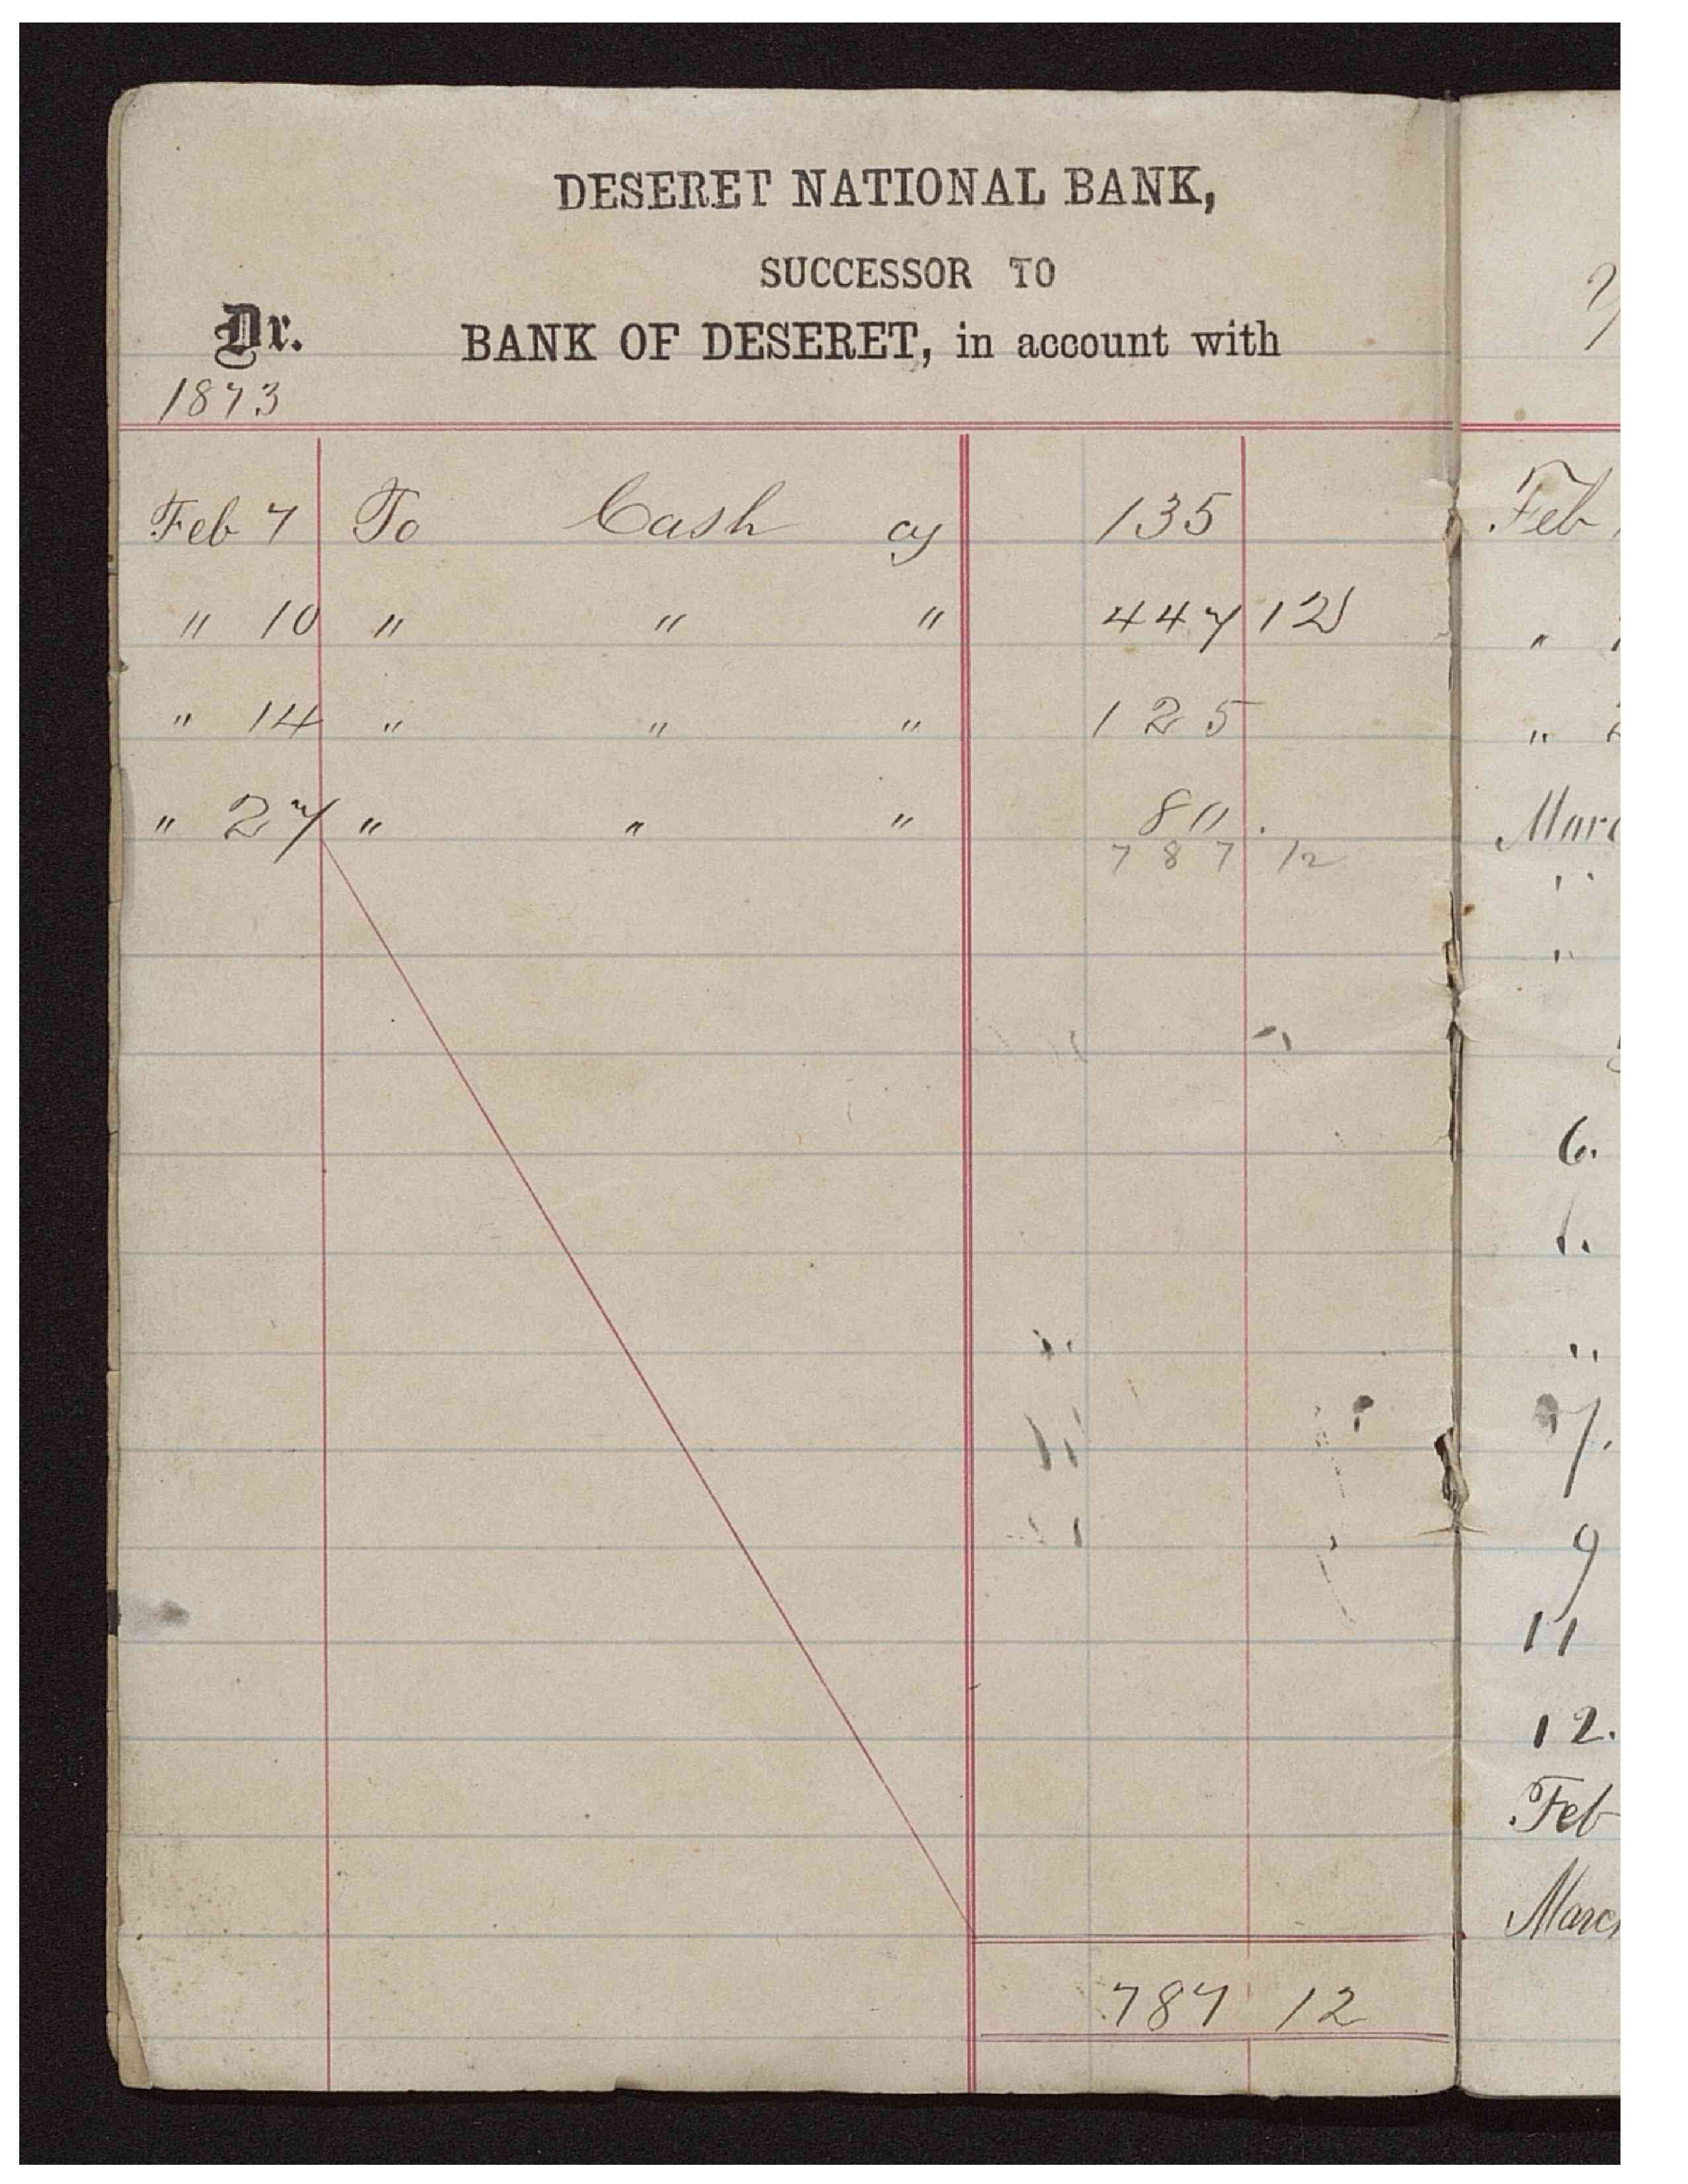 DESERET NATIONAL BANK,
SUCCESSOR TO
Dr. BANK OF DESERET, in account with
1873
Feb 7 To Cash cy 135
" 10 " " " 447 12
" 14 " " " 125
" 27 " " " 80.
787 12
787 12
Feb
"
"
Marc
"
"
6.
"
7.
9
11
12.
Feb
Marc